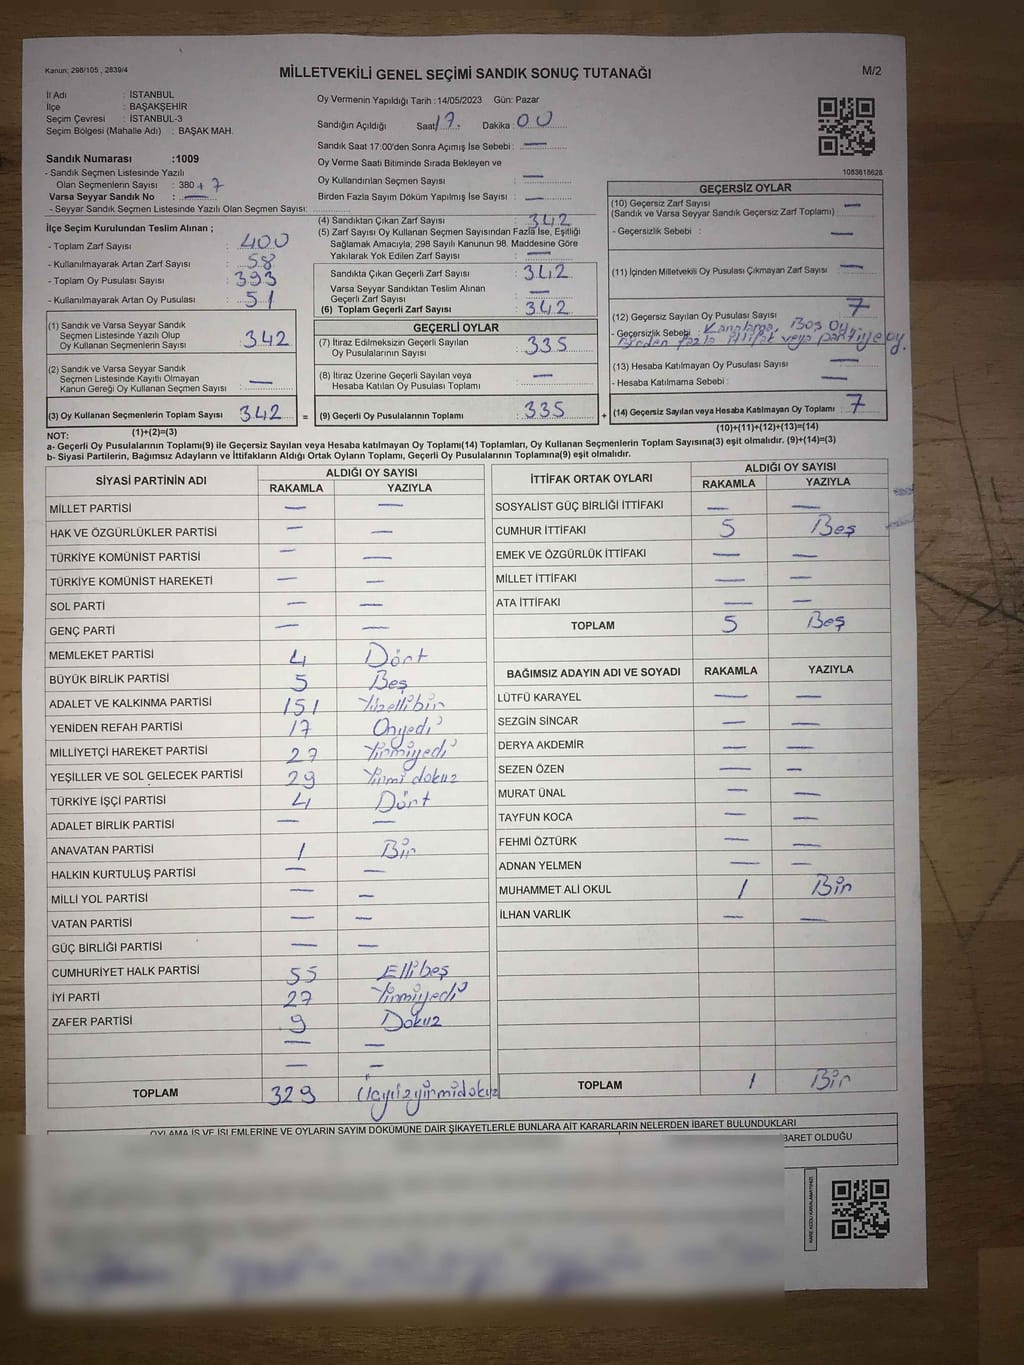 Kanun: 298/105 , 2839/4
MİLLETVEKİLİ GENEL SEÇİMİ SANDIK SONUÇ TUTANAĞI
M/2
İl Adı : İSTANBUL
İlçe : BAŞAKŞEHİR
Seçim Çevresi : İSTANBUL-3
Seçim Bölgesi (Mahalle Adı) : BAŞAK MAH.
Sandık Numarası :1009
- Sandık Seçmen Listesinde Yazılı
Olan Seçmenlerin Sayısı : 380 + 7
Varsa Seyyar Sandık No : —
- Seyyar Sandık Seçmen Listesinde Yazılı Olan Seçmen Sayısı:
Oy Vermenin Yapıldığı Tarih :14/05/2023 Gün: Pazar
Sandığın Açıldığı Saat 17. Dakika : 00
Sandık Saat 17:00'den Sonra Açımış İse Sebebi : —
Oy Verme Saati Bitiminde Sırada Bekleyen ve
Oy Kullandırılan Seçmen Sayısı : —
Birden Fazla Sayım Döküm Yapılmış İse Sayısı : —
1083618628
İlçe Seçim Kurulundan Teslim Alınan ;
- Toplam Zarf Sayısı : 400
- Kullanılmayarak Artan Zarf Sayısı : 58
- Toplam Oy Pusulası Sayısı : 393
- Kullanılmayarak Artan Oy Pusulası : 51
(1) Sandık ve Varsa Seyyar Sandık
Seçmen Listesinde Yazılı Olup
Oy Kullanan Seçmenlerin Sayısı : 342
(2) Sandık ve Varsa Seyyar Sandık
Seçmen Listesinde Kayıtlı Olmayan
Kanun Gereği Oy Kullanan Seçmen Sayısı : —
(3) Oy Kullanan Seçmenlerin Toplam Sayısı : 342
(4) Sandıktan Çıkan Zarf Sayısı : 342
(5) Zarf Sayısı Oy Kullanan Seçmen Sayısından Fazla İse, Eşitliği
Sağlamak Amacıyla; 298 Sayılı Kanunun 98. Maddesine Göre
Yakılarak Yok Edilen Zarf Sayısı : —
Sandıkta Çıkan Geçerli Zarf Sayısı : 342
Varsa Seyyar Sandıktan Teslim Alınan
Geçerli Zarf Sayısı : —
(6) Toplam Geçerli Zarf Sayısı : 342
GEÇERLİ OYLAR
(7) İtiraz Edilmeksizin Geçerli Sayılan
Oy Pusulalarının Sayısı : 335
(8) İtiraz Üzerine Geçerli Sayılan veya
Hesaba Katılan Oy Pusulası Toplamı : —
= (9) Geçerli Oy Pusulalarının Toplamı : 335 +
GEÇERSİZ OYLAR
(10) Geçersiz Zarf Sayısı : —
(Sandık ve Varsa Seyyar Sandık Geçersiz Zarf Toplamı)
- Geçersizlik Sebebi : —
(11) İçinden Milletvekili Oy Pusulası Çıkmayan Zarf Sayısı : —
(12) Geçersiz Sayılan Oy Pusulası Sayısı : 7
- Geçersizlik Sebebi : Karalama, Boş Oy
Birden fazla ittifak veya partiye oy.
(13) Hesaba Katılmayan Oy Pusulası Sayısı : —
- Hesaba Katılmama Sebebi : —
(14) Geçersiz Sayılan veya Hesaba Katılmayan Oy Toplamı : 7
NOT: (1)+(2)=(3) (10)+(11)+(12)+(13)=(14)
a- Geçerli Oy Pusulalarının Toplamı(9) ile Geçersiz Sayılan veya Hesaba katılmayan Oy Toplamı(14) Toplamları, Oy Kullanan Seçmenlerin Toplam Sayısına(3) eşit olmalıdır. (9)+(14)=(3)
b- Siyasi Partilerin, Bağımsız Adayların ve İttifakların Aldığı Ortak Oyların Toplamı, Geçerli Oy Pusulalarının Toplamına(9) eşit olmalıdır.
SİYASİ PARTİNİN ADI ALDIĞI OY SAYISI
RAKAMLA YAZIYLA
MİLLET PARTİSİ — —
HAK VE ÖZGÜRLÜKLER PARTİSİ — —
TÜRKİYE KOMÜNİST PARTİSİ — —
TÜRKİYE KOMÜNİST HAREKETİ — —
SOL PARTİ — —
GENÇ PARTİ — —
MEMLEKET PARTİSİ 4 Dört
BÜYÜK BİRLİK PARTİSİ 5 Beş
ADALET VE KALKINMA PARTİSİ 151 Yüzellibir
YENİDEN REFAH PARTİSİ 17 Onyedi
MİLLİYETÇİ HAREKET PARTİSİ 27 Yirmiyedi
YEŞİLLER VE SOL GELECEK PARTİSİ 29 Yirmi dokuz
TÜRKİYE İŞÇİ PARTİSİ 4 Dört
ADALET BİRLİK PARTİSİ — —
ANAVATAN PARTİSİ 1 Bir
HALKIN KURTULUŞ PARTİSİ — —
MİLLİ YOL PARTİSİ — —
VATAN PARTİSİ — —
GÜÇ BİRLİĞİ PARTİSİ — —
CUMHURİYET HALK PARTİSİ 55 Ellibeş
İYİ PARTİ 27 Yirmiyedi
ZAFER PARTİSİ 9 Dokuz
— —
— —
TOPLAM 329 Üçyüzyirmidokuz
İTTİFAK ORTAK OYLARI ALDIĞI OY SAYISI
RAKAMLA YAZIYLA
SOSYALİST GÜÇ BİRLİĞİ İTTİFAKI — —
CUMHUR İTTİFAKI 5 Beş
EMEK VE ÖZGÜRLÜK İTTİFAKI — —
MİLLET İTTİFAKI — —
ATA İTTİFAKI — —
TOPLAM 5 Beş
BAĞIMSIZ ADAYIN ADI VE SOYADI RAKAMLA YAZIYLA
LÜTFÜ KARAYEL — —
SEZGİN SİNCAR — —
DERYA AKDEMİR — —
SEZEN ÖZEN — —
MURAT ÜNAL — —
TAYFUN KOCA — —
FEHMİ ÖZTÜRK — —
ADNAN YELMEN — —
MUHAMMET ALİ OKUL 1 Bir
İLHAN VARLIK — —
TOPLAM 1 Bir
OYLAMA İŞ VE İŞLEMLERİNE VE OYLARIN SAYIM DÖKÜMÜNE DAİR ŞİKAYETLERLE BUNLARA AİT KARARLARIN NELERDEN İBARET BULUNDUKLARI
BARET OLDUĞU